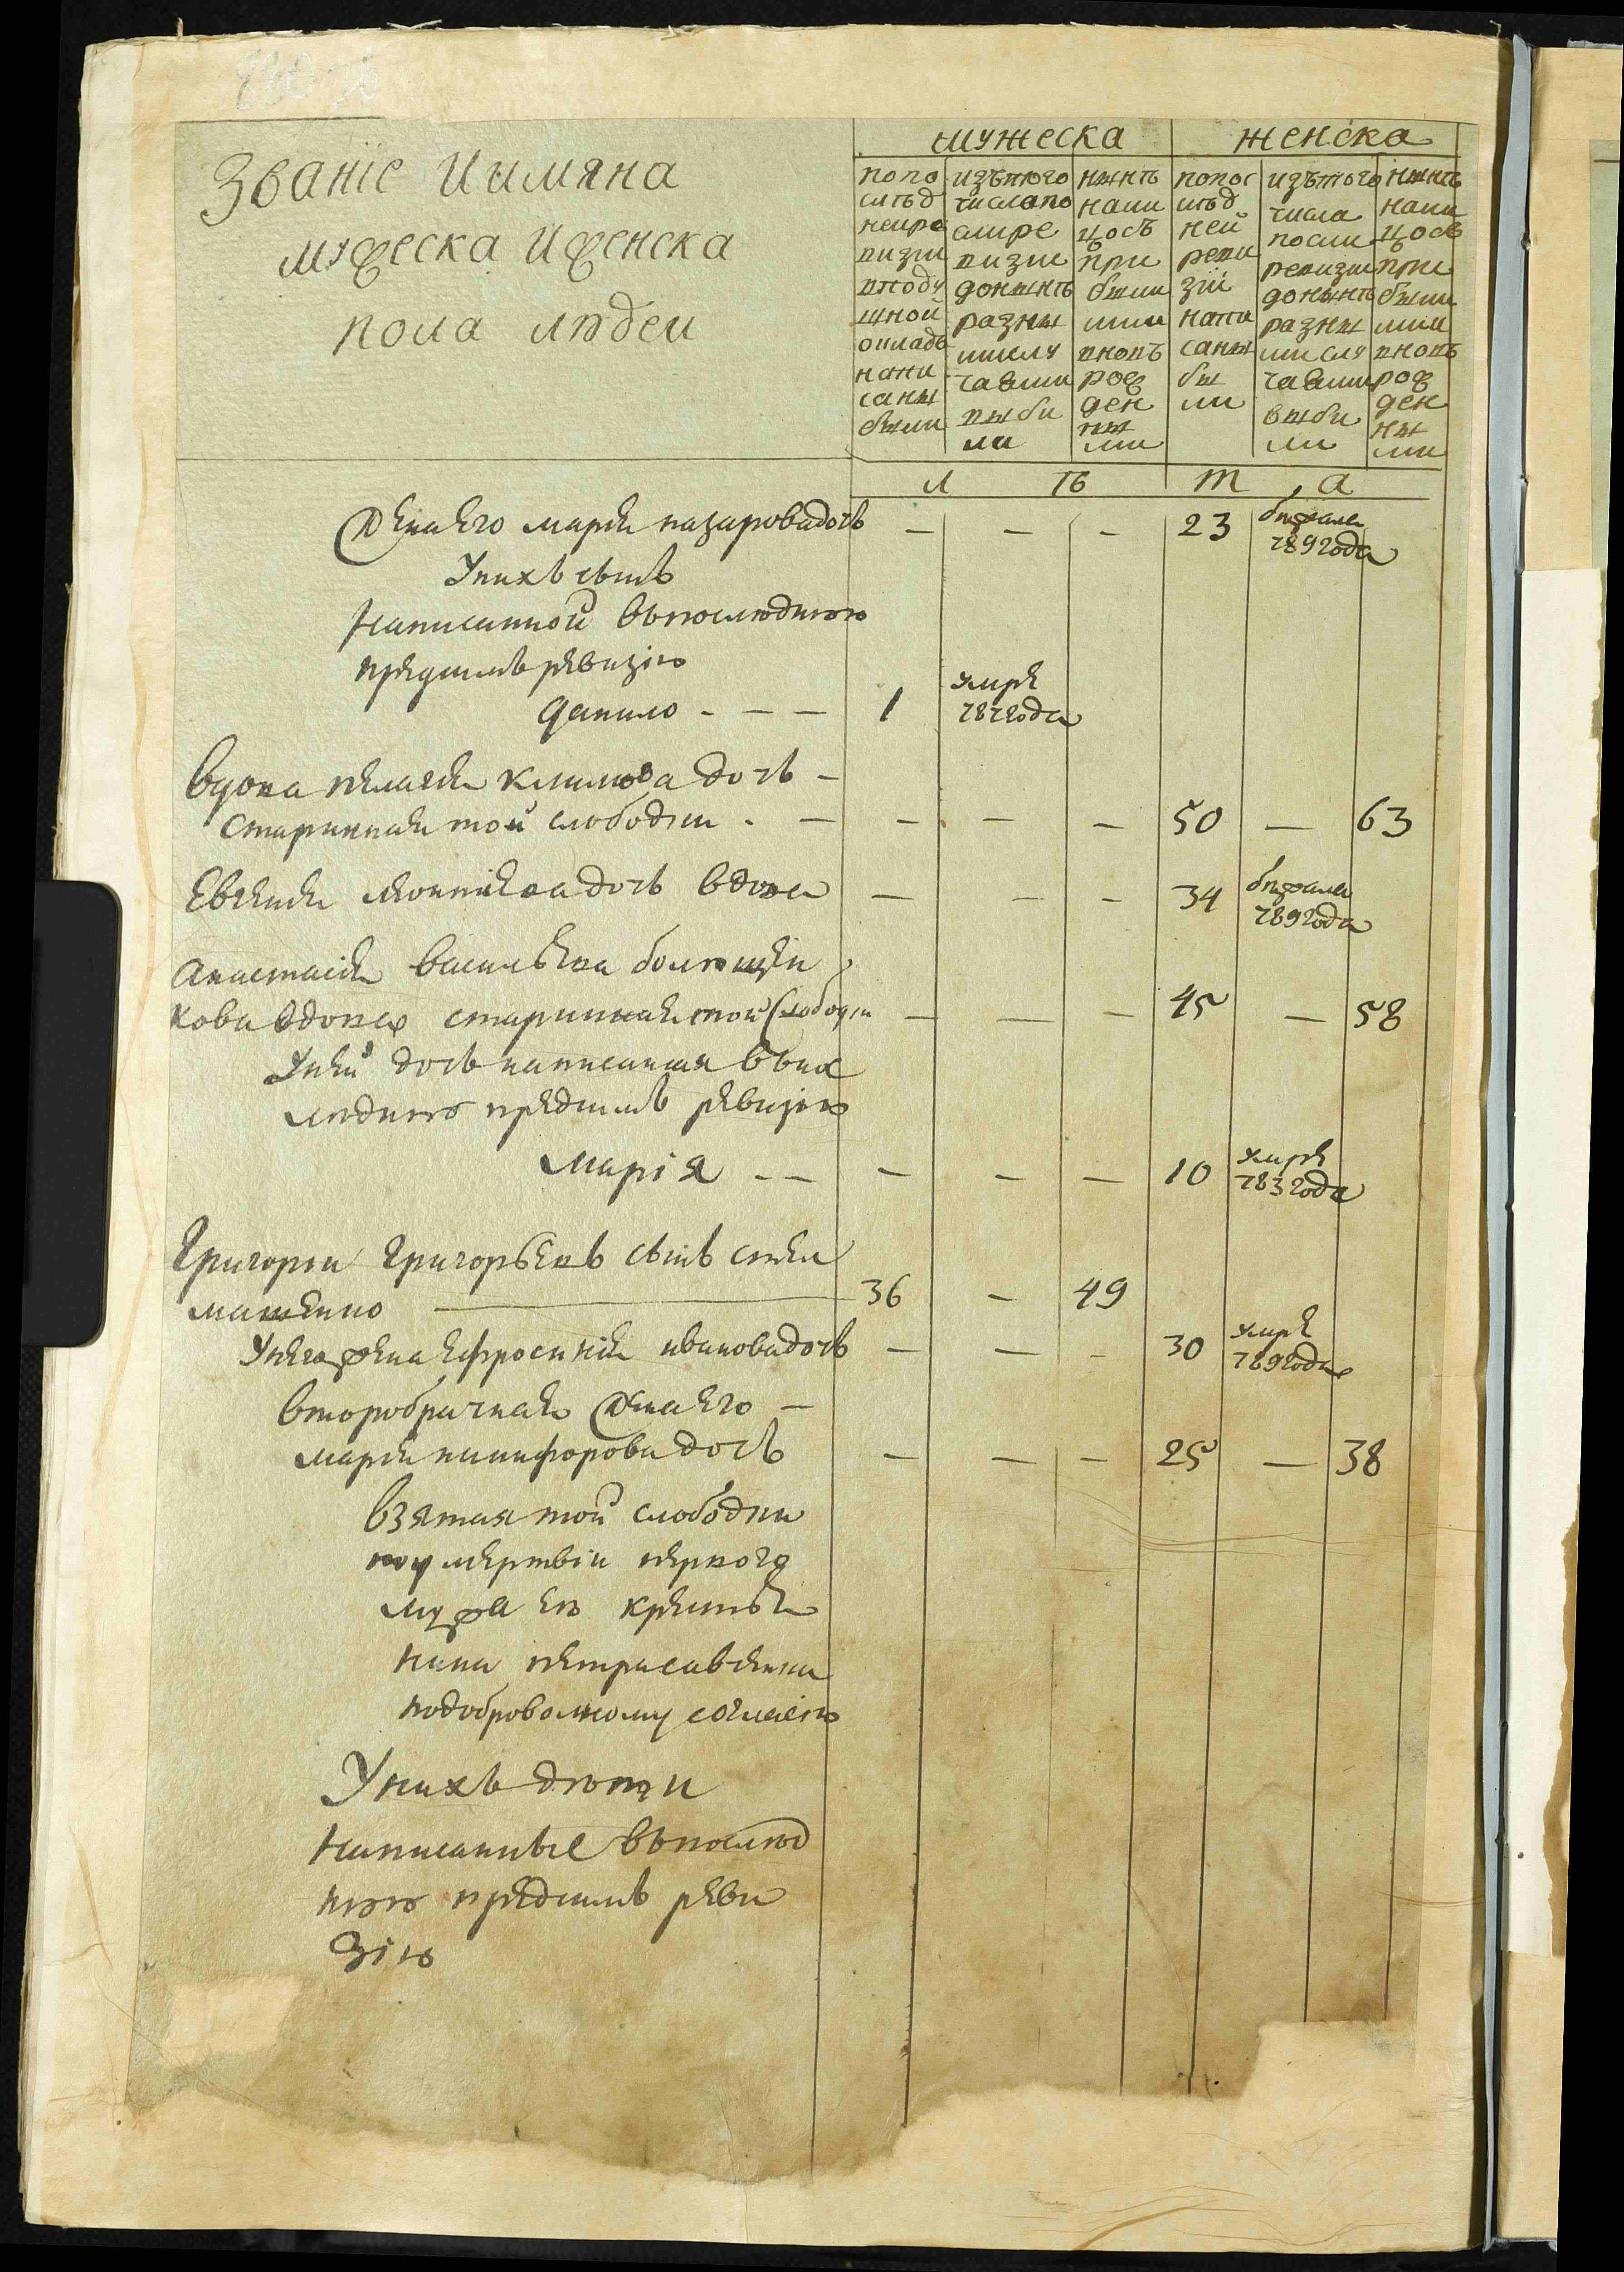 Званїе Иимяна
мужеска Иженска
пола людеи
мужеска
женска
попо слѣд неире визии вподу шной окладъ напи саны были
изътого числапо слире визии донынѣ разны мислу чаями выби ли
нынѣ нали цосъ при былы ми вновъ рож ден ны ми
попос лѣд ней реви зїй напи саны бы ли
изътого числа посли ревизии донынѣ разны мислу чаями выби ли
нынѣ нали цосъ при были ми вновъ рож ден ны ми
л ѣ т а
Жена Его марїя назаровадочь — — — 23 бѣжала 789 года
Унихъ сынъ
Написанной впоследнюю
предъимъ ревизїю
данило - — — 1 умре 787 года
Вдова пелагея климова дочь —
старинная той слободки - — — — — 50 — 63
Евгения леонтїева дочь вдова — — — 34 бѣжала 789 года
Анастасїя васильева
кова вдова старинная той слободки — — — 45 — 58
Уней дочь написанная впос
леднюю предъимъ ревизїю
Марїя - — — — — 10 умре 783 года
Григореи Григорьевъ сынъ стел
машенко — 36 — 49
Унего жена ефросинїя ивановадочь — — — 30 умре 789 года
второбрачная Жена Его —
марїя никифорова дочь — — — 25 — 38
взятая той слободки
поумертвїи первого
мужа ея крестья
нина петра савенки
подобровольному согласїю
Унихъ дѣти
Написанные впослед
нюю предъимъ реви
зїю